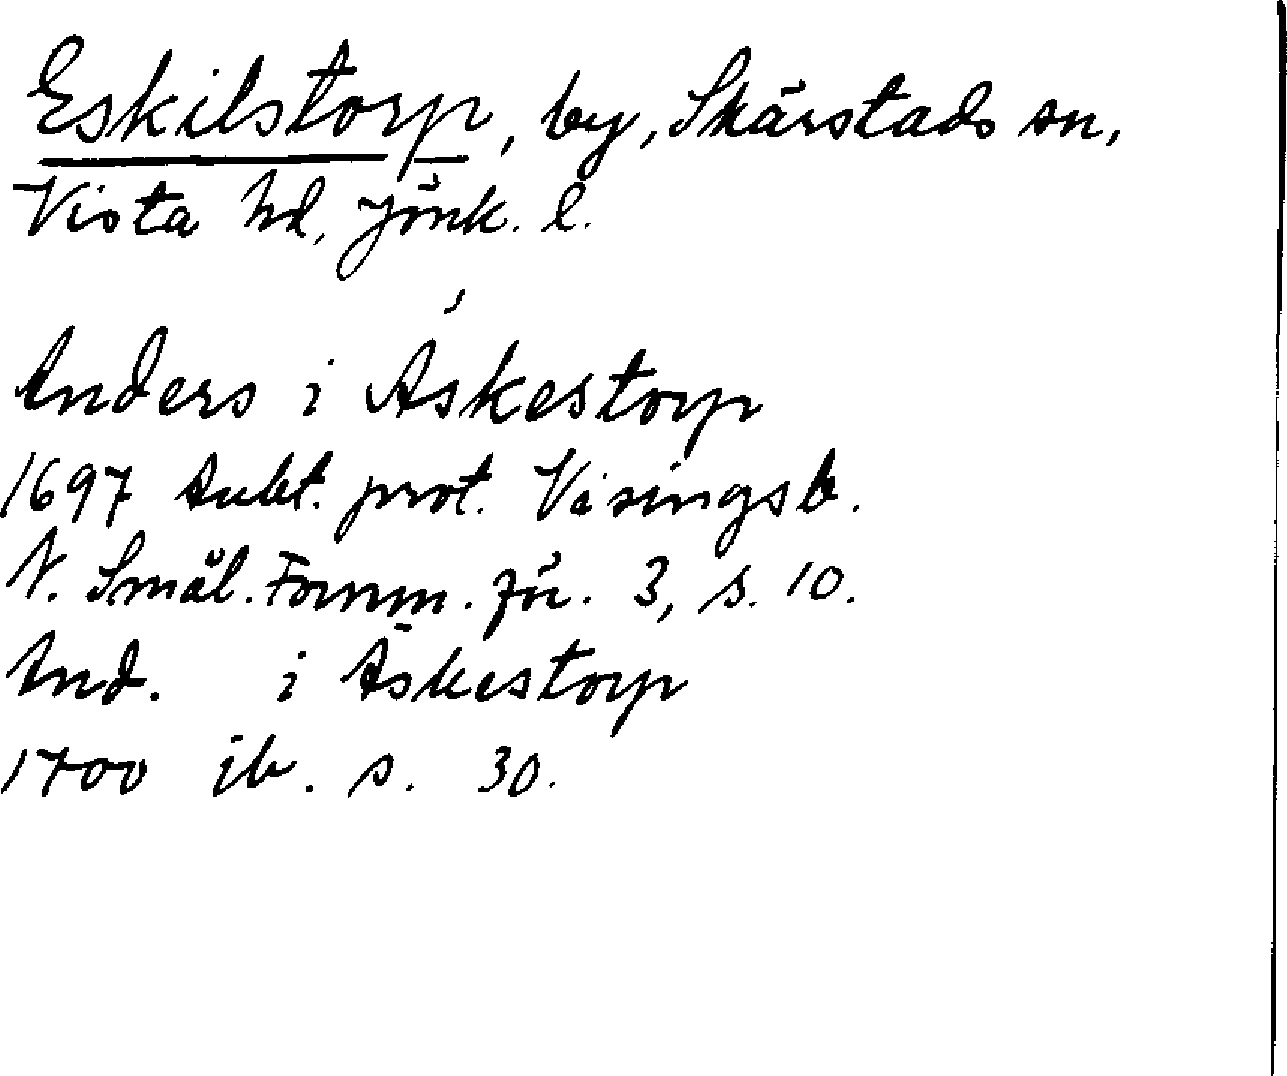 Eskilstorp, by, Skärstads sn,
Vista hd, Jönk. l.
Anders i Äskestorp
1697 Aukt. prot. Visingsb.
N. Smål. Fornm. för. 3, s. 10.
And. i Äskestorp
1700 ib. s. 30.